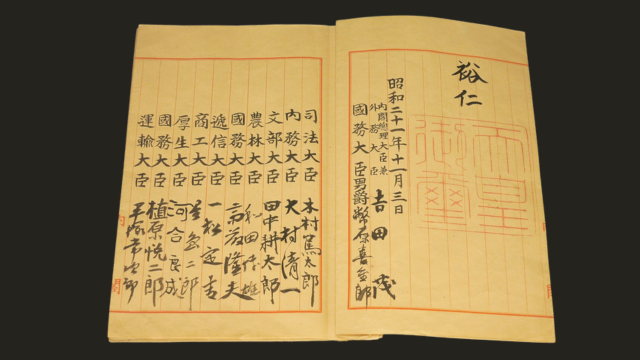 裕仁
天皇
御璽
昭和二十一年十一月三日
内閣總理大臣兼
外務大臣 吉田茂
國務大臣 男爵幣原喜重郎
司法大臣 木村篤太郎
内務大臣 大村清一
文部大臣 田中耕太郎
農林大臣 和田博雄
國務大臣 斎藤隆夫
遞信大臣 一松定吉
商工大臣 星島二郎
厚生大臣 河合良成
國務大臣 植原悦二郎
運輸大臣 平塚常次郎